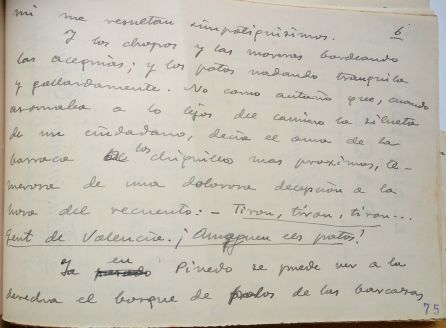 mi me resultan simpatiquísimos. 6
Y los chopos y las moreras bordeando
las acequias; y los patos nadando tranquila
y gallardamente. No como antaño que, cuando
asomaba a lo lejos del camino la silueta
de un ciudadano, decía el ama de la
barraca a los chiquillos mas proximos, te-
merosa de una dolorosa decepción a la
hora del recuento: - Tirou, tirou, tirou...
gent de Valencia. ¡Amagguen els patos!
Ya en Pinedo se puede ver a la
derecha el bosque de palos de las barcazas
75